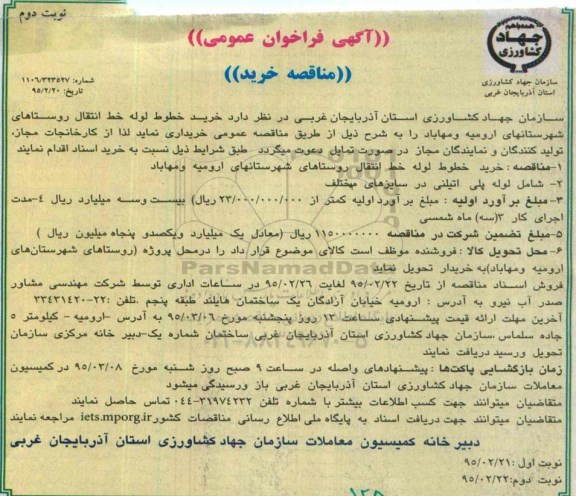 نوبت دوم
همواهم
جهاد
کشاورزی
((آگهی فراخوان عمومی))
((مناقصه خرید))
سازمان جهاد کشاورزی
استان آذربایجان غربی
شماره: ۱۱۰۶/۳۲۳۵۲۷
تاریخ: ۹۵/۲/۲۰
سازمان جهاد کشاورزی استان آذربایجان غربی در نظر دارد خرید خطوط لوله خط انتقال روستاهای
شهرستانهای ارومیه ومهاباد را به شرح ذیل از طریق مناقصه عمومی خریداری نماید لذا از کارخانجات مجاز،
تولید کنندگان و نمایندگان مجاز در صورت تمایل دعوت میگردد طبق شرایط ذیل نسبت به خرید اسناد اقدام نمایند
۱-مناقصه : خرید خطوط لوله خط انتقال روستاهای شهرستانهای ارومیه ومهاباد
۲- شامل لوله پلی اتیلنی در سایزهای مختلف
۳-مبلغ بر آورد اولیه : مبلغ بر آورد اولیه کمتر از ۲۳/۰۰۰/۰۰۰/۰۰۰ ریال) بیست وسه میلیارد ریال ۴-مدت
اجرای کار ۳(سه) ماه شمسی
۵-مبلغ تضمین شرکت در مناقصه ۱۱۵۰۰۰۰۰۰۰ ریال (معادل یک میلیارد ویکصدو پنجاه میلیون ریال )
۶-محل تحویل کالا : فروشنده موظف است کالای موضوع قرار داد را درمحل پروژه (روستاهای شهرستان‌های
ارومیه ومهاباد)به خریدار تحویل نماید
ParsNamadData
فروش اسناد مناقصه از تاریخ ۹۵/۰۲/۲۲ لغایت ۹۵/۰۲/۲۶ در ساعات اداری توسط شرکت مهندسی مشاور
صدر آب نیرو به آدرس : ارومیه خیابان آزادگان یک ساختمان هایلند طبقه پنجم .تلفن :۲۲-۳۳۴۳۱۴۲۰
آخرین مهلت ارائه قیمت پیشنهادی ساعت ۱۳ روز پنجشنبه مورخ ۹۵/۰۳/۰۶ به آدرس -ارومیه - کیلومتر ۵
جاده سلماس ,سازمان جهاد کشاورزی استان آذربایجان غربی ,ساختمان شماره یک-دبیر خانه مرکزی سازمان
تحویل ورسید دریافت نمایند
زمان بازگشایی پاکت‌ها : پیشنهادهای واصله در ساعت ۹ صبح روز شنبه مورخ ۹۵/۰۳/۰۸ در کمیسیون
معاملات سازمان جهاد کشاورزی استان آذربایجان غربی باز ورسیدگی میشود
متقاضیان میتوانند جهت کسب اطلاعات بیشتر با شماره تلفن ۳۱۹۷۴۲۳۲-۰۴۴ تماس حاصل نمایند
متقاضیان میتوانند جهت دریافت اسناد به پایگاه ملی اطلاع رسانی مناقصات کشور iets.mporg.ir مراجعه نمایند
دبیر خانه کمیسیون معاملات سازمان جهاد کشاورزی استان آذربایجان غربی
نوبت اول :۹۵/۰۲/۲۱
نوبت دوم:۹۵/۰۲/۲۲